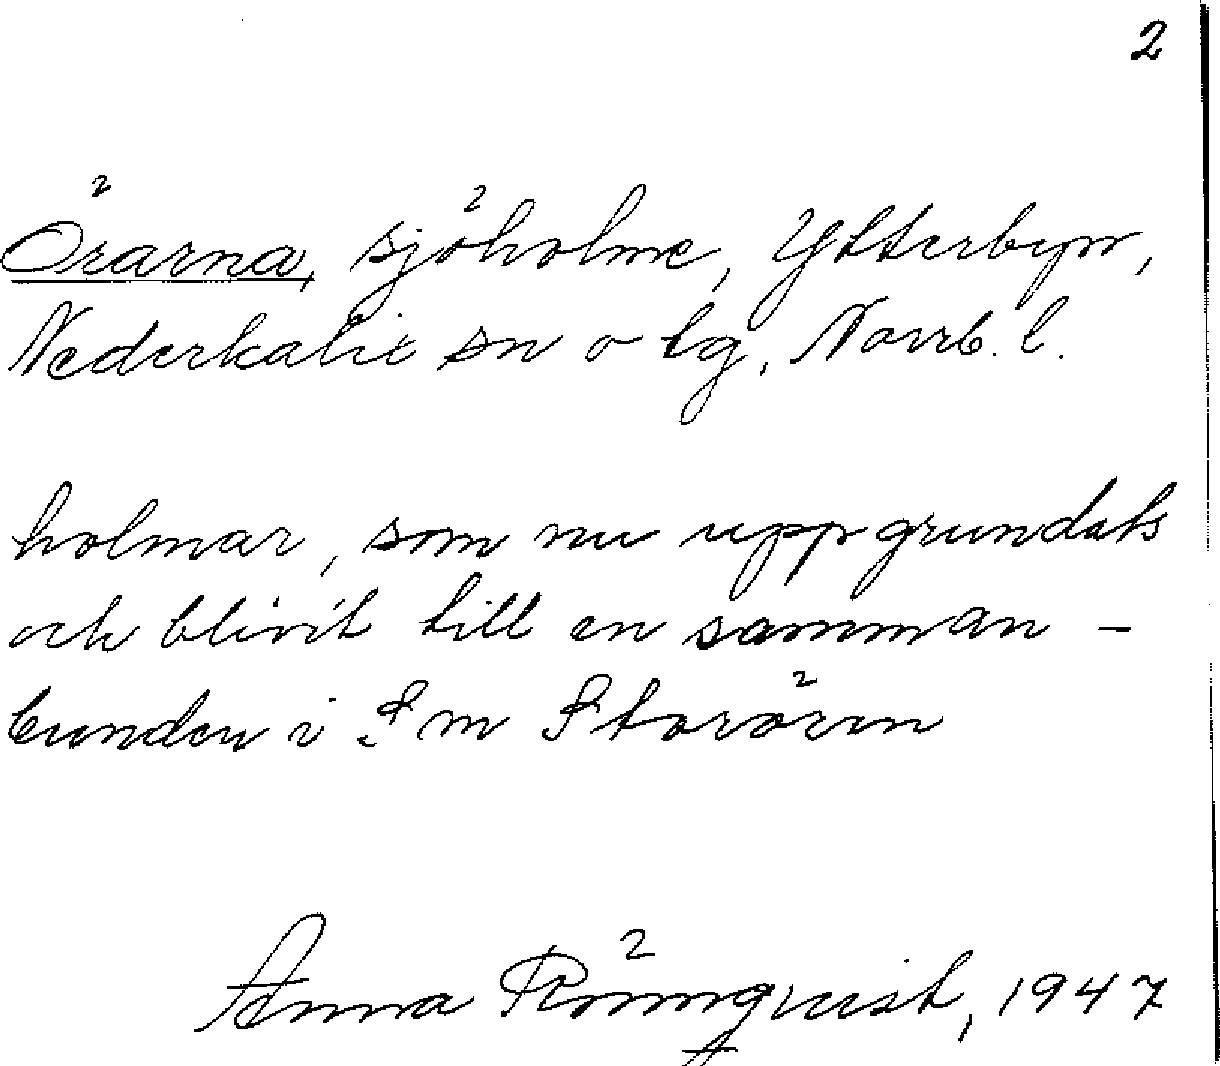 2
Örarna, sjöholme, Ytterbyn,
Nederkalix sn o tg, Norrb. l.
holmar, som nu uppgrundats
och blivit till en samman-
bunden i S m Storören
Anna Rönnqvist, 1947